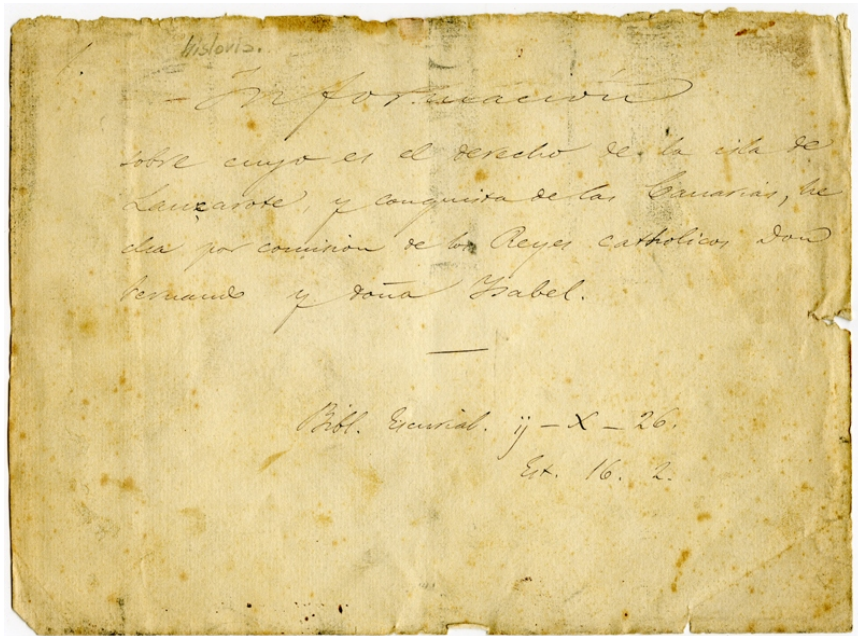 historia.
- Información
sobre cuyo es el derecho de la isla de
Lanzarote, y conquista de las Canarias, he
cha por comision de los Reyes catholicos Don
Fernando y Doña Isabel.
Bibl. Escurial. ij - X - 26.
Est. 16. 2.